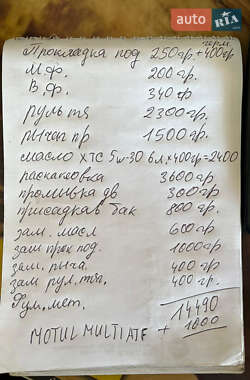 auto RIA
герм
Прокладка под 250гр.+400гр
М.ф. 200гр.
В.ф. 340ф
руль тя 2300гр.
рычаг пр 1500гр.
масло ХТС 5w-30 6л×400гр=2400
распаковка 3600гр
промывка дв 300гр
присадка в бак 800гр.
зам. масл 600гр
зам прок под. 1000гр
зам. рыча. 400гр
зам рул. тяг. 400гр.
14490
MOTUL MULTI ATF + 1000